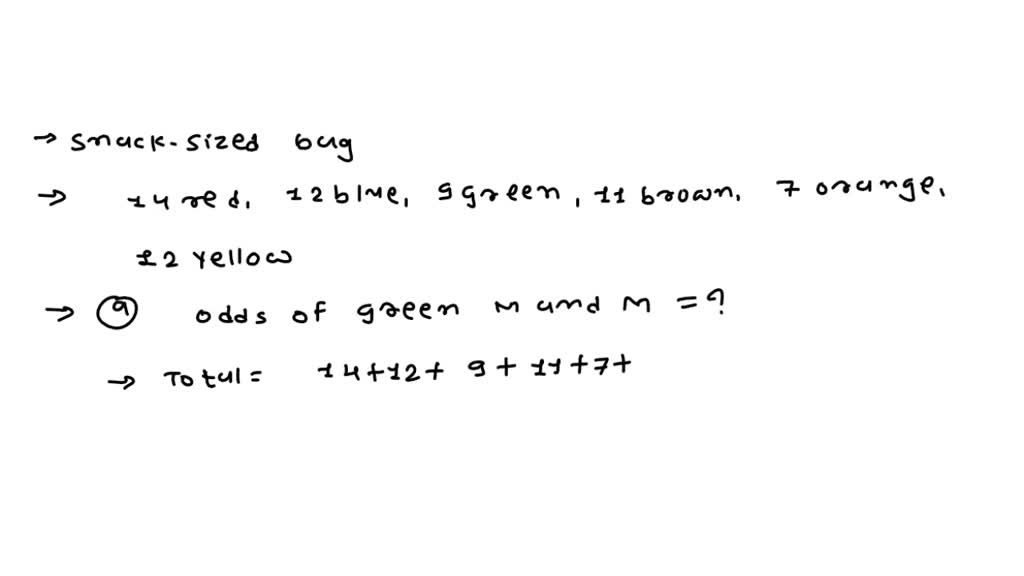 → snack-sized bag
→ 14 red, 12 blue, 9 green, 11 brown, 7 orange,
12 yellow
→ (a) odds of green M and M = ?
→ Total = 14+12+ 9+ 11+7+